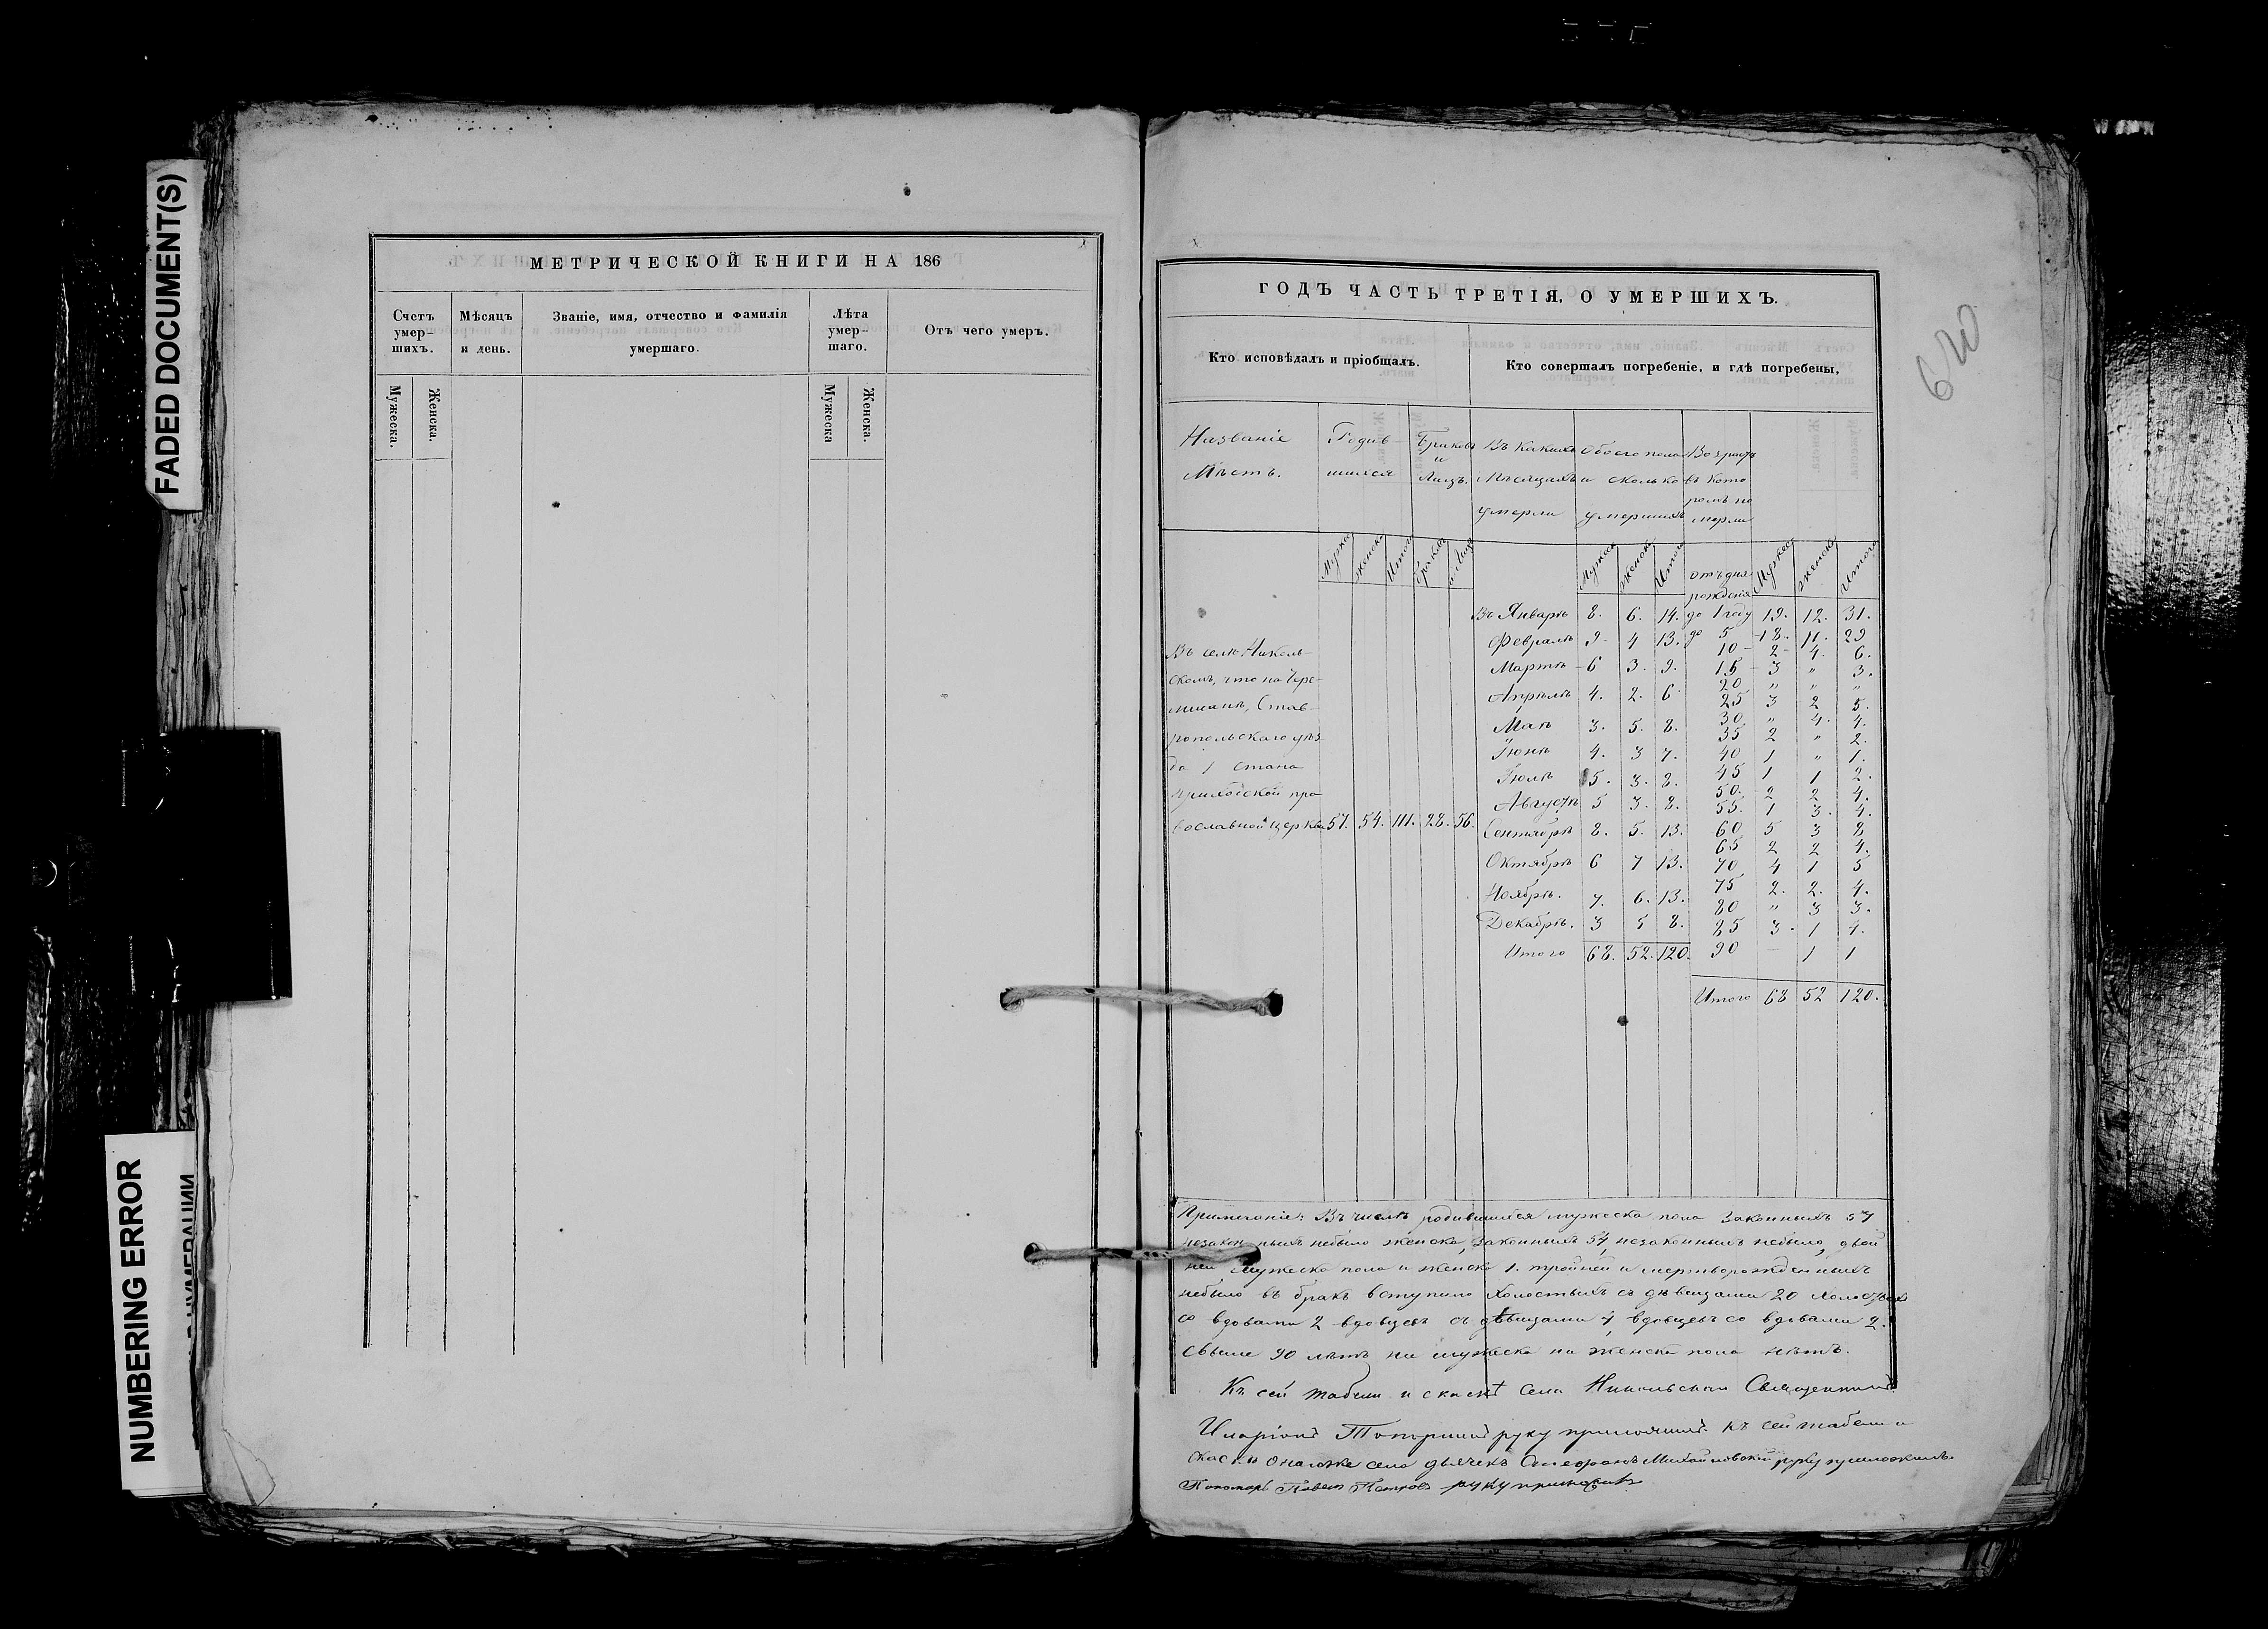 FADED DOCUMENT(S)
NUMBERING ERROR
МЕТРИЧЕСКОЙ КНИГИ НА 186
Счетъ умер-шихъ.
Мѣсяцъ и день.
Званіе, имя, отчество и фамилія умершаго.
Лѣта умер-шаго.
Отъ чего умеръ.
Мужеска.
Женска.
Мужеска
Женска.
ГОДЪ ЧАСТЬ ТРЕТІЯ, О УМЕРШИХЪ.
Кто исповѣдалъ и пріобщалъ.
Кто совершалъ погребеніе, и гдѣ погребены,
Названіе Мѣстъ.
Родив-шихся
Браковъ и Лицъ.
Въ какихъ Мѣсяцахъ умерли
Обоего пола и сколько умершихъ
Возрастъ въ кото ромъ по мерли
Мужес женска Итого браковъ и Лицъ
Мужеск Женска Итого
отъ дня рожденія
Мужес женска Итого
Въ Январѣ 8. 6. 14. до 1 году 19. 12. 31.
Февралѣ 9. 4 13. до 5 18. 11. 29
10 2 4. 6.
Мартѣ 6 3. 9. 15 3 " 3.
20 " " "
Апрѣлѣ 4. 2. 6 25 3 2 5.
30 " 4. 4.
Маѣ 3. 5. 8. 35 2 " 2.
Іюнѣ 4. 3 7. 40 1 " 1.
Іюлѣ 5. 3. 8. 45 1 1 2.
50. 2 2 4.
Августѣ 5 3. 8. 55. 1 3. 4.
Сентябрѣ 8. 5. 13. 60 5 3 8
65 2 2 4.
Октябрѣ 6 7 13. 70 4 1 5
Ноябрѣ. 7. 6. 13. 75 2. 2. 4.
80 " 3 3.
Декабрѣ. 3 5 8. 85 3. 1 4.
Итого 68. 52. 120. 90 — 1 1
Итого 68 52 120.
Въ селѣ Николь-
скомъ, что на Чере-
мшанѣ, Став-
ропольскаго уѣз
да 1 стана
приходской пра
вославной церкви 57. 54. 111. 28. 56.
Примечаніе: Въ числѣ родившихся мужеска пола законныхъ 57
незакон ныхъ небыло женска, законныхъ 54, незаконныхъ небыло, двой
ней мужеска пола и женска 1. тройней и мертворожденныхъ
небыло въ бракъ вступило холостыхъ съ дѣвицами 20 холостыхъ
со вдовами 2 вдовцевъ съ дѣвицами 4, вдовцевъ со вдовами 2.
Свыше 90 лѣтъ ни мужеска ни женска пола нѣтъ.
Къ сей табели и скаскѣ села Никольскаго Священникъ
Иларіонъ руку приложилъ. Къ сей табели и
скаски онагоже села дьячекъ Михайловскій руку приложилъ.
Пономарь Павелъ Петровъ руку приложилъ